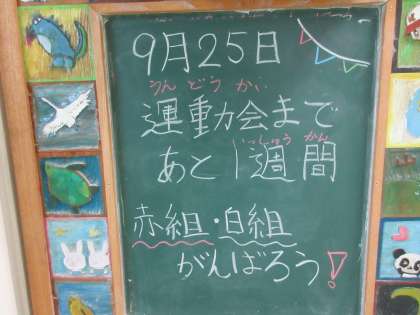 9月25日
うんどうかい
運動会まで
いっしゅうかん
あと1週間
赤組・白組
がんばろう!